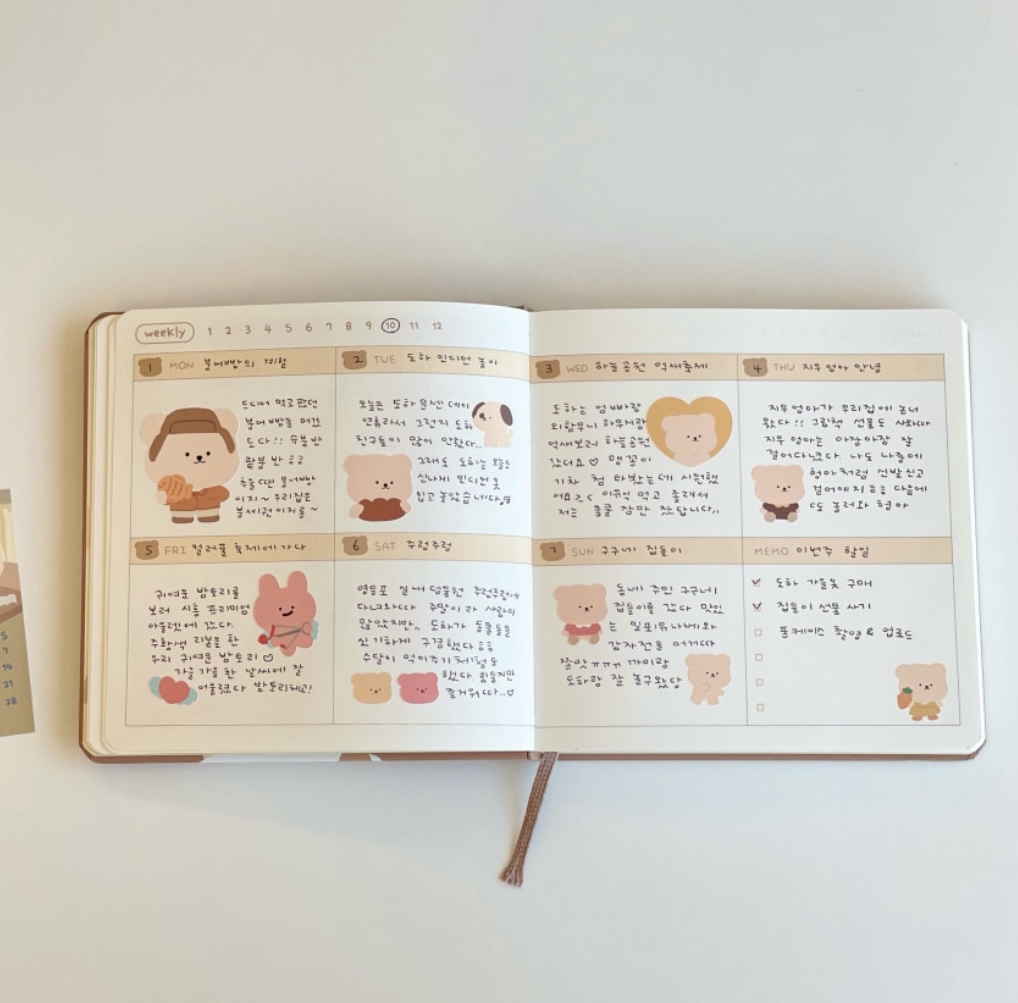 weekly 1 2 3 4 5 6 7 8 9 10 11 12
1 MON 붕어빵의 계절
드디어 먹고팠던
붕어빵을 먹었
도다!! 슈붕반
팥붕반 ㅎㅎ
겨울
붕어빵
이지~ 우리집은
붕세권이지롱~
2 TUE 도하 인디언 놀이
오늘은 도하 문센 데이
연휴라서 그런지 도하
친구들이 많이 안왔다..
그래도 도하는 오늘도
신나게 인디언옷
입고 놀았습니다
3 WED 하늘공원 억새축제
도하는 엄빠랑
외할무니 하부지랑
억새보러 하늘공원
갔더요♡ 맹꽁이
기차 첨 타봤는데 시원했
어요><
먹고 졸려서
저는 쿨쿨 잠만 잤답니다..
4 THU 지우엉아 안녕
지우엉아가 우리집에 놀러
왔다!! 그림책 선물도 사와따
지우 엉아는 아장아장 잘
걸어다녔다. 나도 나중에
형아처럼 신발신고
걸어야지 ㅎㅎ 다음에
또 놀러와 형아
5 FRI 컬러풀 축제에 가다
귀여운 밤토리를
보러 시흥 프리미엄
아울렛에 갔다.
주황색 리본을 한
우리 귀여운 밤토리♡
가을가을한 날씨에 잘
어울렸다 밤토리최고!
6 SAT 주렁주렁
영등포 실내 동물원 주렁주렁에
다녀와따 주말이라 사람이
많았지만.. 도하가 동물들을
신기하게 구경했다 ㅎㅎ
수달이 먹이주기체험도
했다. 힘들지만
즐거워따..♡
7 SUN 구구네 집들이
동네 주민 구구네
집들이를 갔다 맛있
는 밀푀유나베와
감자전을 머거따
존맛ㅠㅠ
까미랑
도하랑 잘 놀구왔당
MEMO 이번주 할일
도하 가을옷 구매
집들이 선물 사기
폰케이스 촬영 & 업로드
5
7
14
21
28